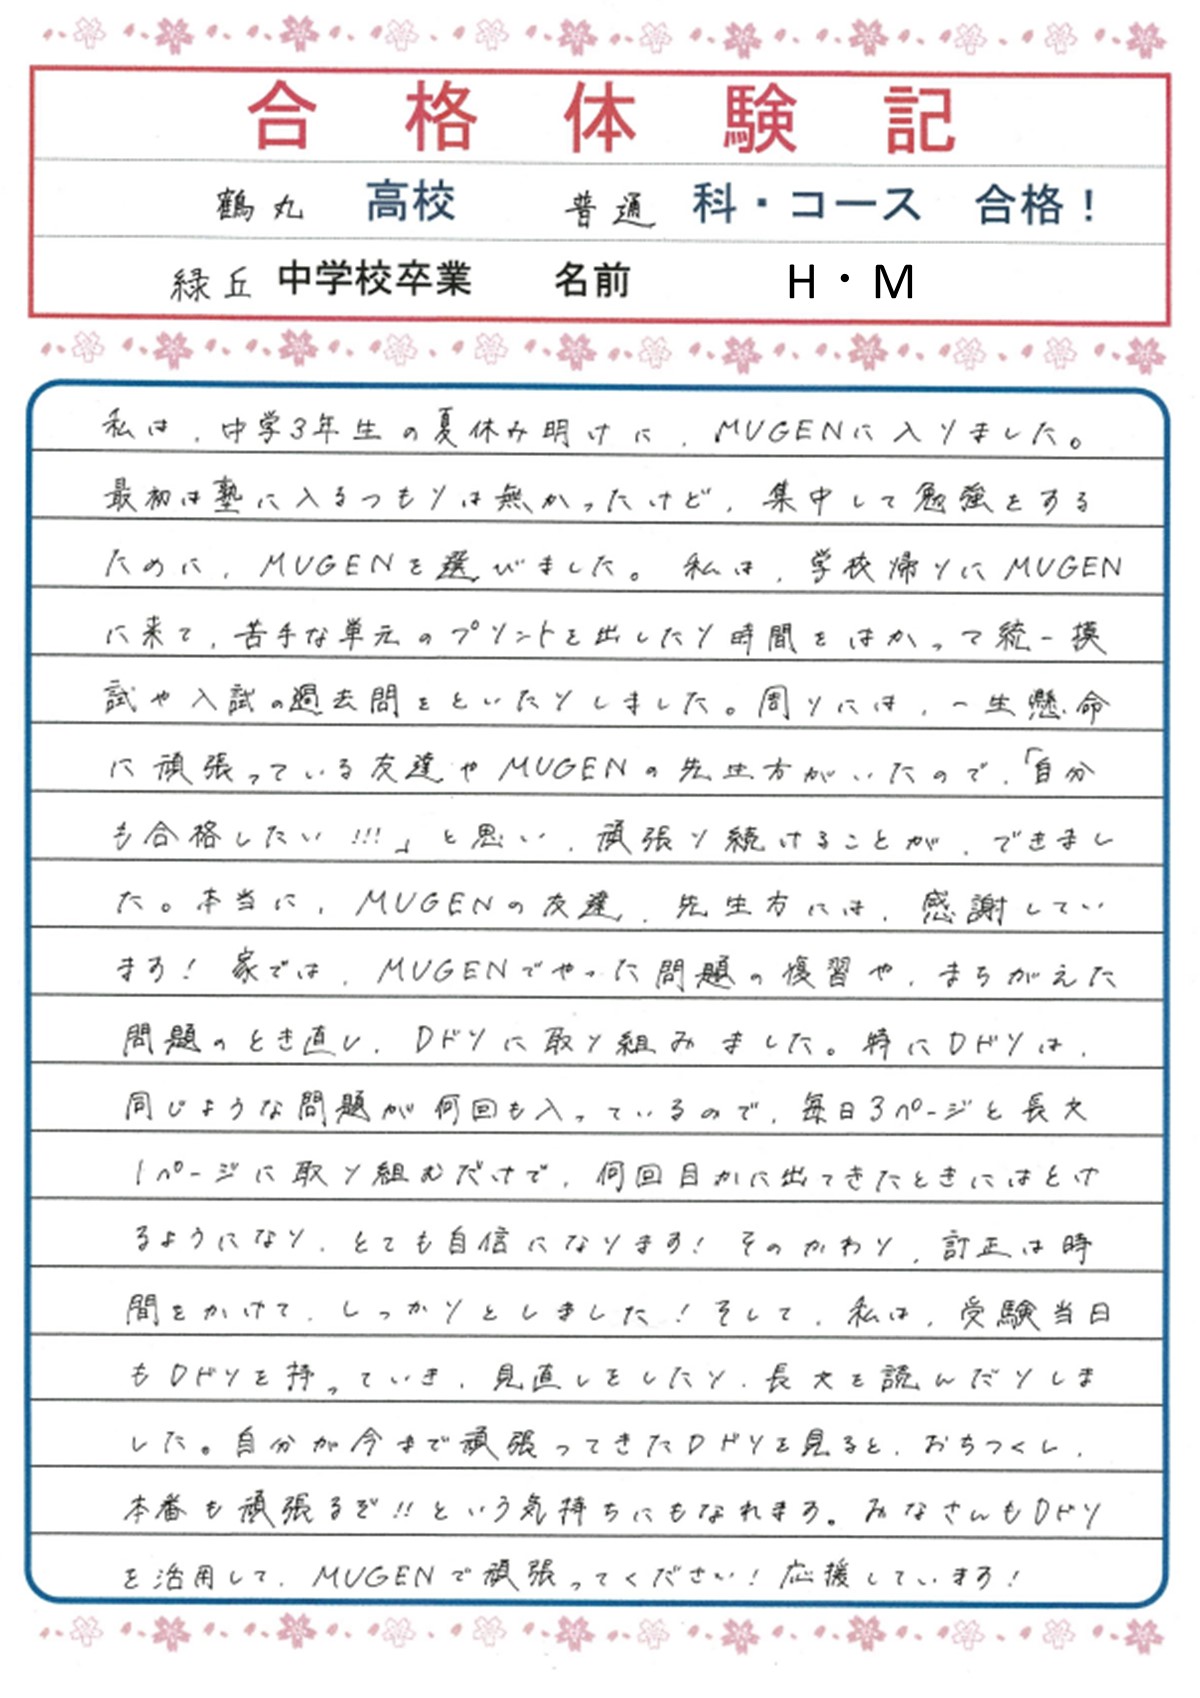 合格体験記
鶴丸 高校 普通 科・コース 合格！
緑丘 中学校卒業 名前 H・M
私は、中学3年生の夏休み明けに、MUGENに入りました。
最初は塾に入るつもりは無かったけど、集中して勉強をする
ために、MUGENを選びました。私は、学校帰りにMUGEN
に来て、苦手な単元のプリントを出したり時間をはかって統一模
試や入試の過去問をといたりしました。周りには、一生懸命
に頑張っている友達やMUGENの先生方がいたので、「自分
も合格したい!!!」と思い、頑張り続けることが、できまし
た。本当に、MUGENの友達、先生方には、感謝してい
ます！家では、MUGENでやった問題の復習や、まちがえた
問題のとき直し、Dドリに取り組みました。特にDドリは、
同じような問題が何回も入っているので、毎日3ページと長文
1ページに取り組むだけで、何回目かに出てきたときにはとけ
るようになり、とても自信になります！そのかわり、訂正は時
間をかけて、しっかりとしました！そして、私は、受験当日
もDドリを持っていき、見直しをしたり、長文を読んだりしま
した。自分が今まで頑張ってきたDドリを見ると、おちつくし、
本番も頑張るぞ!!という気持ちにもなれます。みなさんもDドリ
を活用して、MUGENで頑張ってください！応援しています！